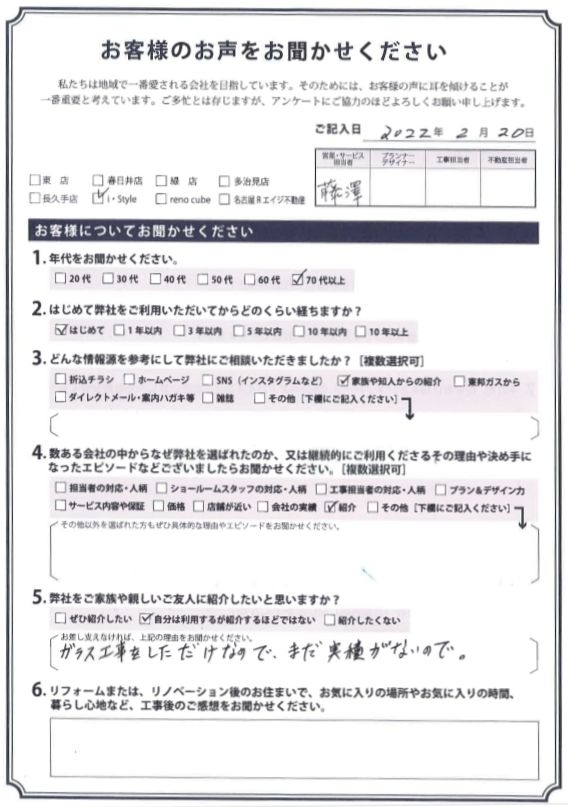 お客様のお声をお聞かせください
私たちは地域で一番愛される会社を目指しています。そのためには、お客様の声に耳を傾けることが
一番重要と考えています。ご多忙とは存じますが、アンケートにご協力のほどよろしくお願い申し上げます。
ご記入日 2022年 2月 20日
営業・サービス担当者 プランナーデザイナー 工事担当者 不動産担当者
藤澤
□東 店 □春日井店 □緑 店 □多治見店
□長久手店 ☑i・Style □reno cube □名古屋Rエイジ不動産
お客様についてお聞かせください
1. 年代をお聞かせください。
□20代 □30代 □40代 □50代 □60代 ☑70代以上
2. はじめて弊社をご利用いただいてからどのくらい経ちますか？
☑はじめて □1年以内 □3年以内 □5年以内 □10年以内 □10年以上
3. どんな情報源を参考にして弊社にご相談いただきましたか？［複数選択可］
□折込チラシ □ホームページ □SNS（インスタグラムなど） ☑家族や知人からの紹介 □東邦ガスから
□ダイレクトメール・案内ハガキ等 □雑誌 □その他［下欄にご記入ください］
4. 数ある会社の中からなぜ弊社を選ばれたのか、又は継続的にご利用くださるその理由や決め手に
なったエピソードなどございましたらお聞かせください。［複数選択可］
□担当者の対応・人柄 □ショールームスタッフの対応・人柄 □工事担当者の対応・人柄 □プラン&デザイン力
□サービス内容や保証 □価格 □店舗が近い □会社の実績 ☑紹介 □その他［下欄にご記入ください］
その他以外を選ばれた方もぜひ具体的な理由やエピソードをお聞かせください。
5. 弊社をご家族や親しいご友人に紹介したいと思いますか？
□ぜひ紹介したい ☑自分は利用するが紹介するほどではない □紹介したくない
お差し支えなければ、上記の理由をお聞かせください。
ガラス工事をしただけなので、まだ実積がないので。
6. リフォームまたは、リノベーション後のお住まいで、お気に入りの場所やお気に入りの時間、
暮らし心地など、工事後のご感想をお聞かせください。